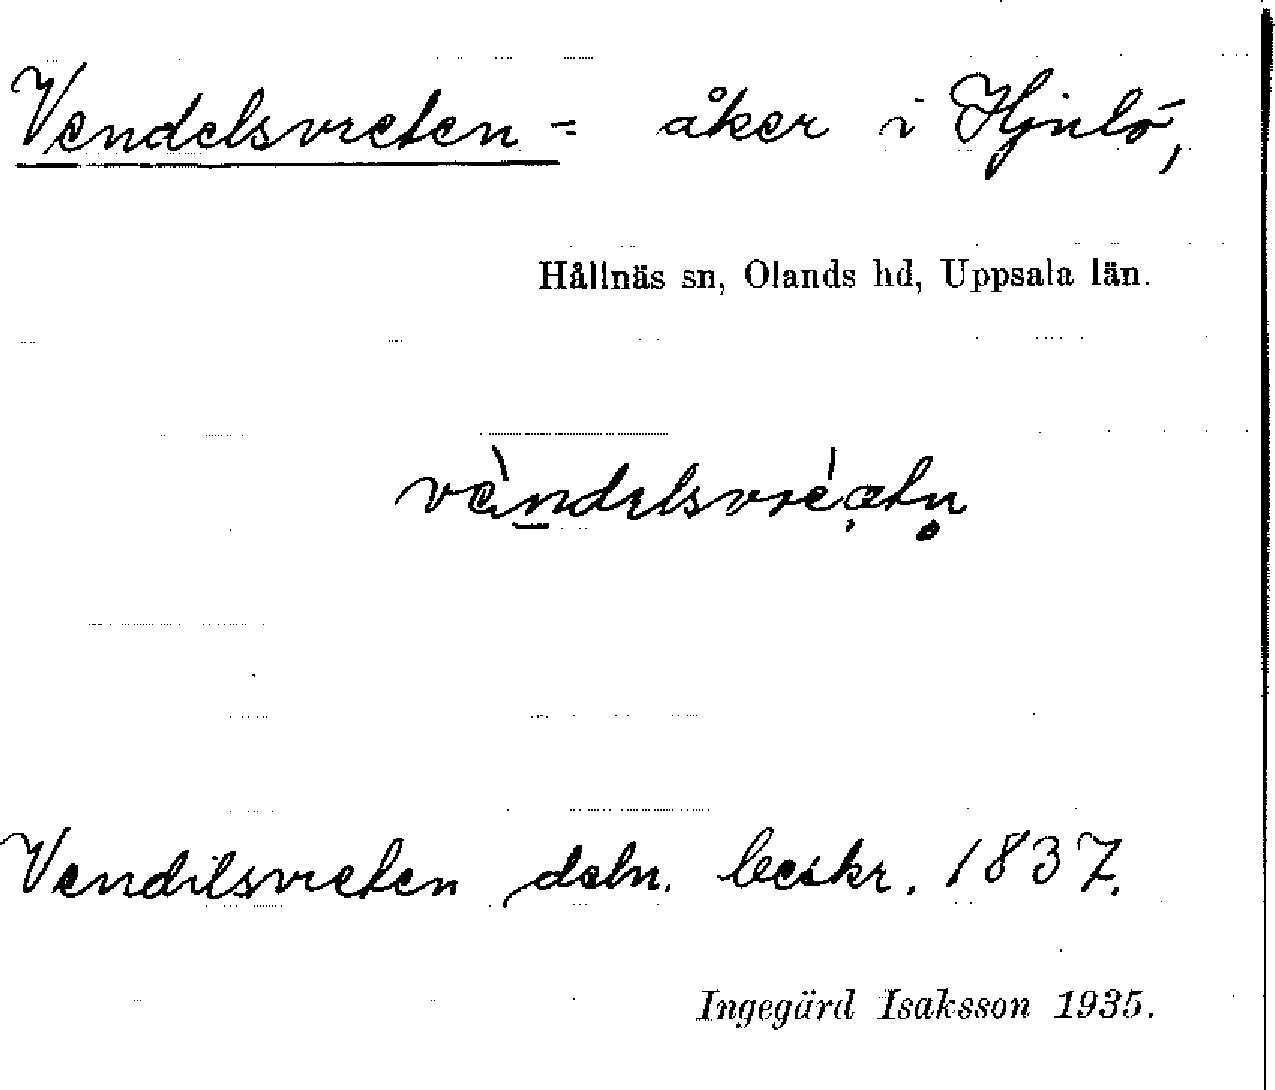 Vendelsvreten = åker i Hjulö,
Hållnäs sn, Olands hd, Uppsala län.
vèndelsvréatn̥
Vendilsvreten , dsbn. beskr. 1837.
Ingegärd Isaksson 1935.